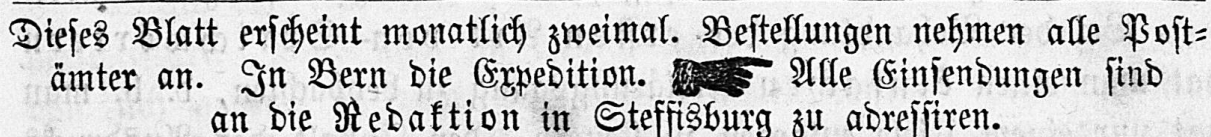 Dieses Blatt erscheint monatlich zweimal. Bestellungen nehmen alle Post-
ämter an. In Bern die Expedition. ☛ Alle Einsendungen sind
an die Redaktion in Steffisburg zu adressiren.